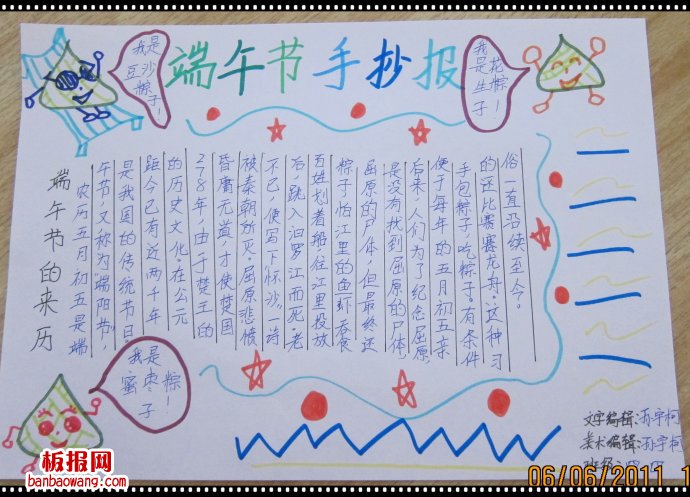 端午节手抄报
我是
豆沙
粽子!
我花
是粽
生!
子
端午节的来历
农历五月初五是端
午节,又称为端阳节,
是我国的传统节日。
距今已有近两千年
的历史文化。在公元
278年,由于楚王的
昏庸无道,才使楚国
被秦朝所灭。屈原悲愤
不已,便写下怀沙一诗
后,跳入汨罗江而死。老
百姓划着船往江里投放
粽子,怕江里的鱼虾吞食
屈原的尸体,但最终还
是没有找到屈原的尸体,
后来,人们为了纪念屈原,
便于每年的五月初五亲
手包粽子,吃粽子。有条件
的还比赛赛龙舟。这种习
俗一直沿续至今。
我是
蜜枣粽
子!
文字编辑:孙宇柯
美术编辑:孙宇柯
班级:
06/06/2011 1
板报网
banbaowang.com